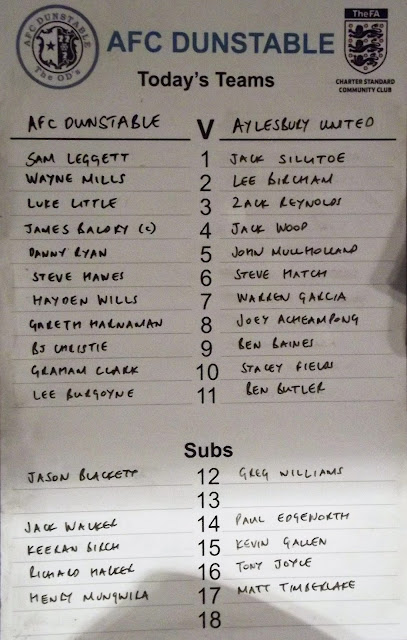 AFC DUNSTABLE
The OD's
AFC DUNSTABLE
TheFA
CHARTER STANDARD
COMMUNITY CLUB
Today's Teams
AFC DUNSTABLE V AYLESBURY UNITED
SAM LEGGETT 1 JACK SILLITOE
WAYNE MILLS 2 LEE BIRCHAM
LUKE LITTLE 3 ZACK REYNOLDS
JAMES BALDRY (C) 4 JACK WOOD
DANNY RYAN 5 JOHN MULLHOLLAND
STEVE HAWES 6 STEVE HATCH
HAYDEN WILLS 7 WARREN GARCIA
GARETH HARNAMAN 8 JOEY ACHEAMPONG
BJ CHRISTIE 9 BEN BAINES
GRAHAM CLARK 10 STACEY FIELDS
LEE BURGOYNE 11 BEN BUTLER
Subs
JASON BLACKETT 12 GREG WILLIAMS
13
JACK WALKER 14 PAUL EDGEWORTH
KEERAN BIRCH 15 KEVIN GALLEN
RICHARD HARKER 16 TONY JOYCE
HENRY MUNGWIRA 17 MATT TIMBERLAKE
18